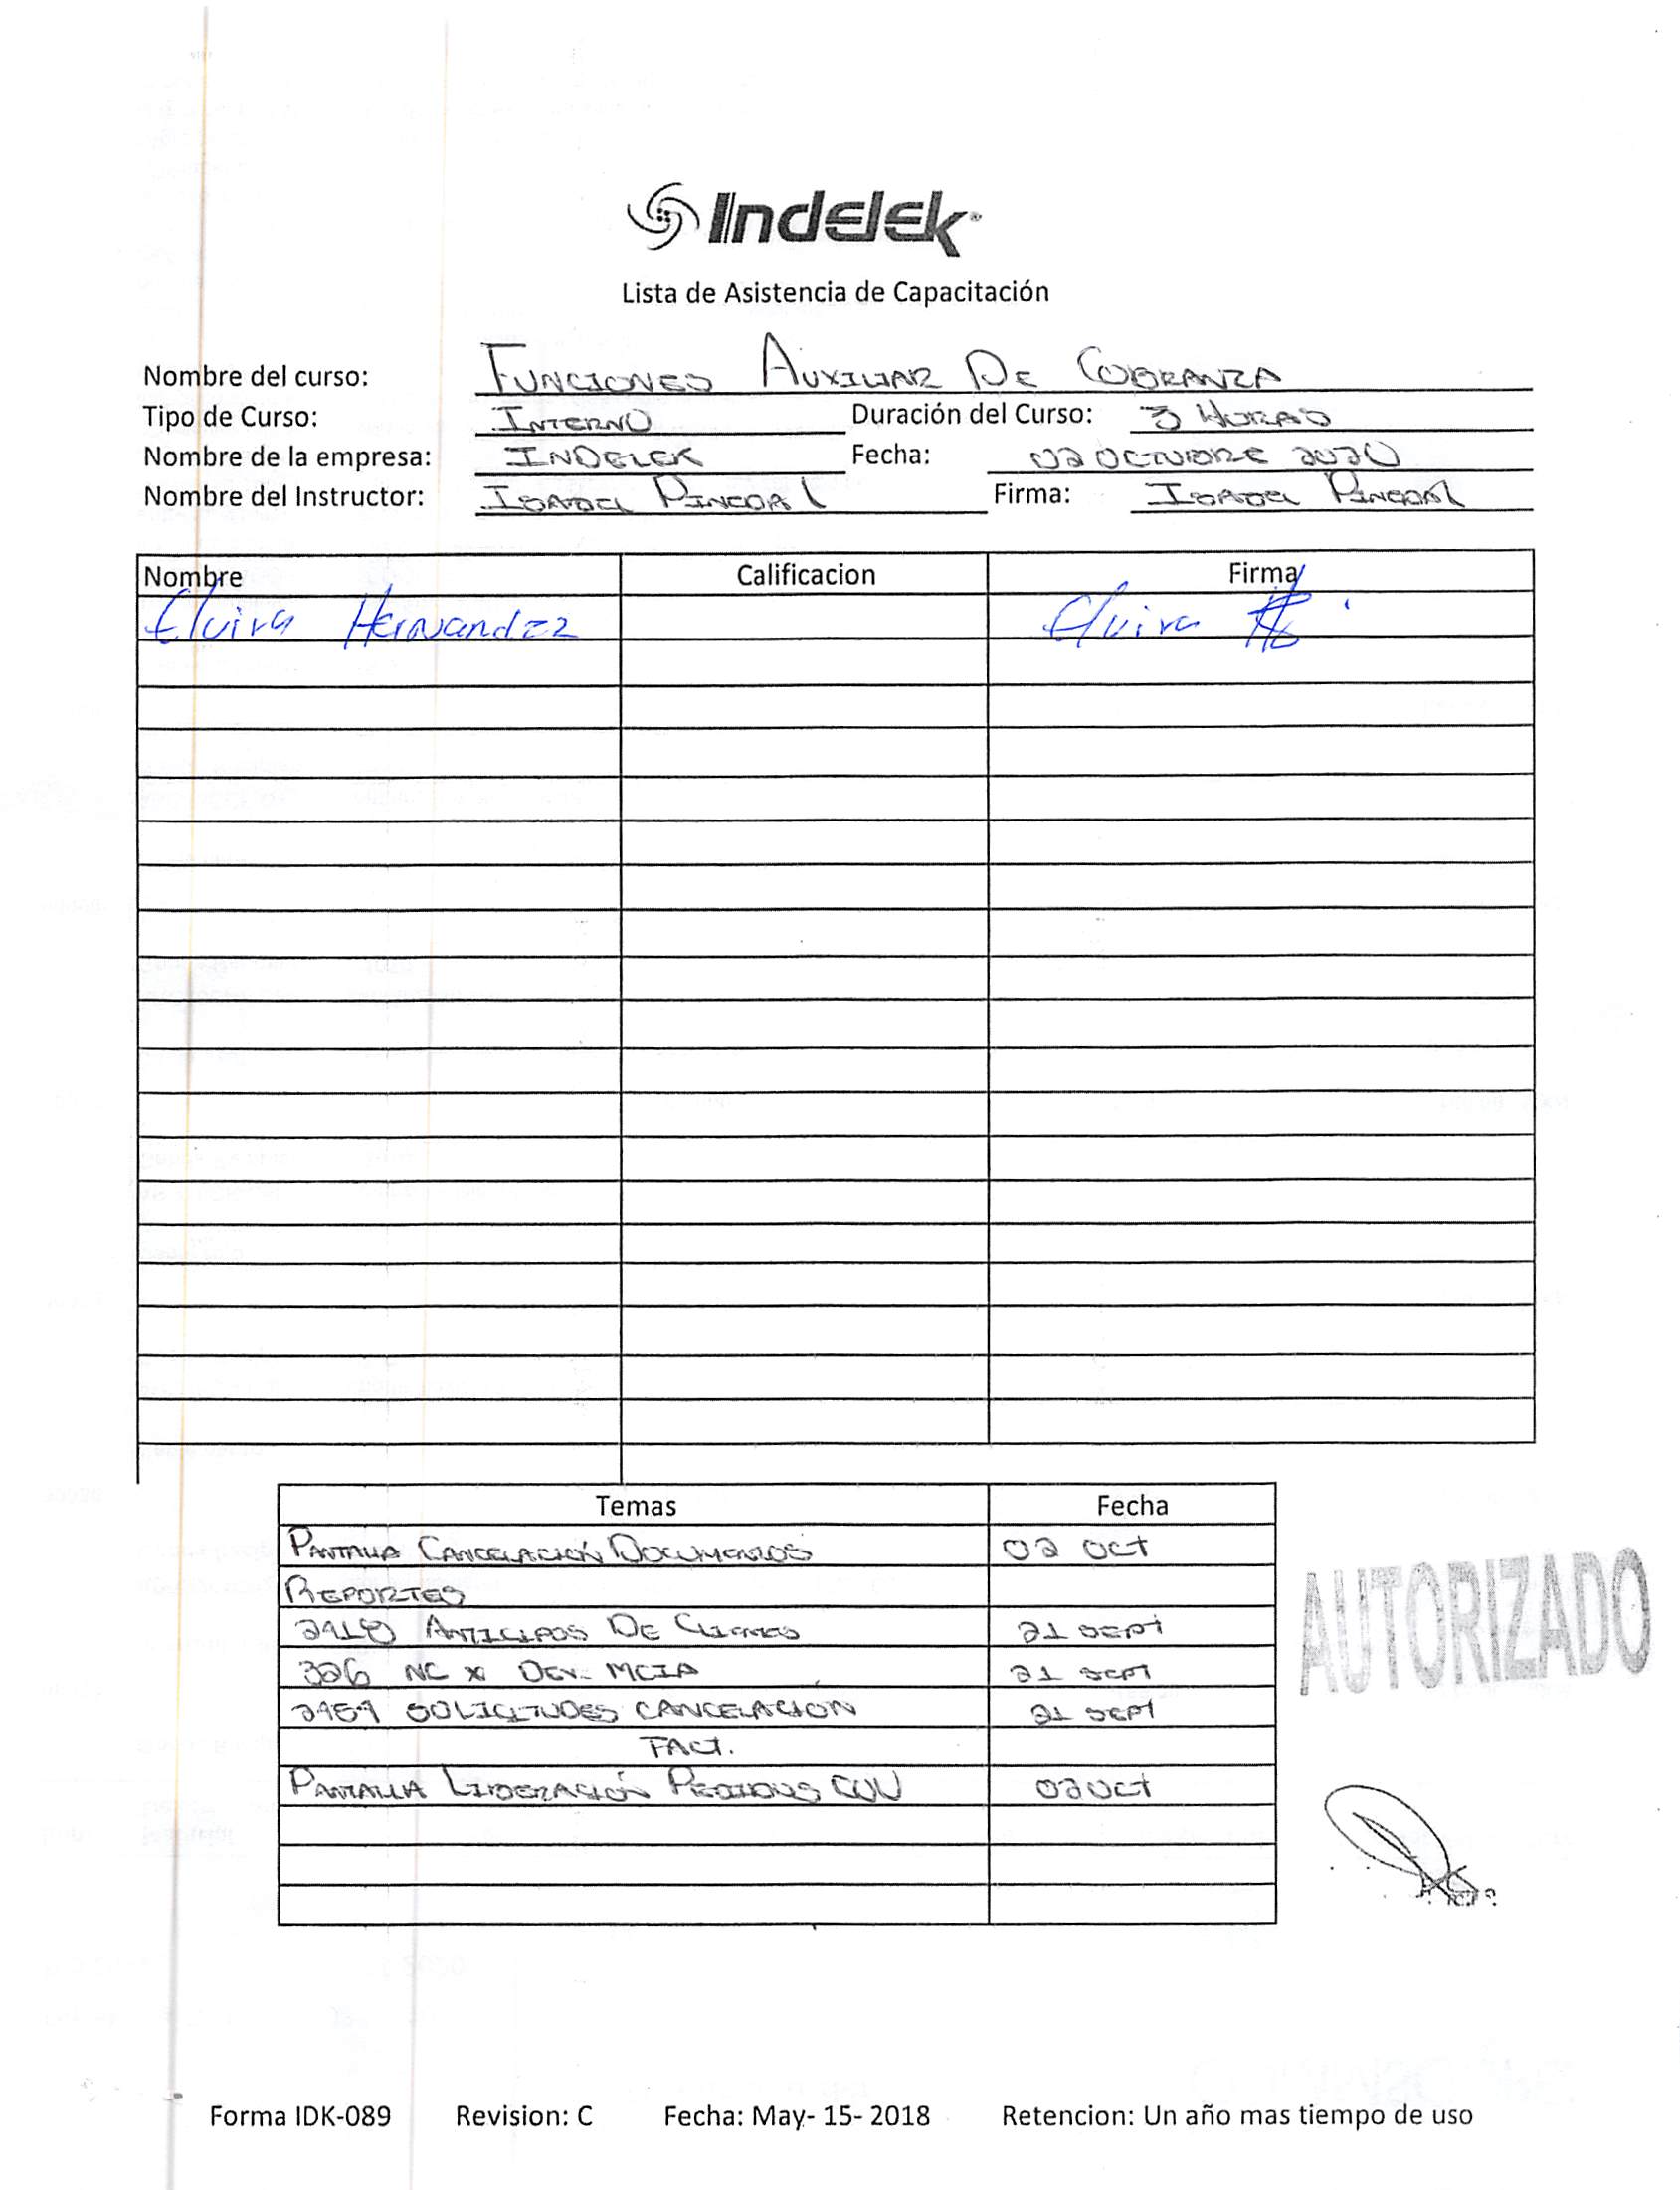 Indelek
Lista de Asistencia de Capacitación
Nombre del curso: FUNCIONES AUXILIAR DE COBRANZA
Tipo de Curso: INTERNO Duración del Curso: 3 HORAS
Nombre de la empresa: INDELEK Fecha: 02 OCTUBRE 2020
Nombre del Instructor: ISABEL Firma: ISABEL
Nombre Calificacion Firma
Elvira Hernandez Elvira
Temas Fecha
PANTALLA CANCELACIÓN DOCUMENTOS 02 OCT
REPORTES
ANTICIPOS DE CLIENTES 21 SEPT
326 NC X DEV. MCIA 21 SEPT
SOLICITUDES CANCELACION 21 SEPT
FACT.
PANTALLA LIBERACIÓN PEDIDOS 02 OCT
AUTORIZADO
Forma IDK-089 Revision: C Fecha: May- 15- 2018 Retencion: Un año mas tiempo de uso